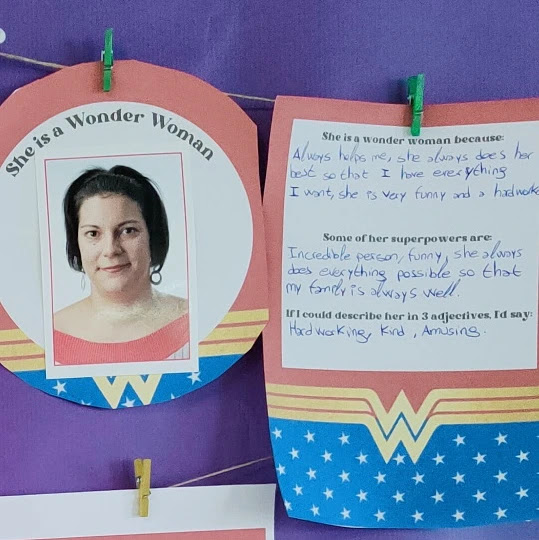 She is a Wonder Woman
She is a wonder woman because:
Always helps me, she always does her
best so that I have everything
I want, she is very funny and a
Some of her superpowers are:
Incredible person, funny, she always
does everything possible so that
my family is always well.
If I could describe her in 3 adjectives, I'd say:
Hard working, Kind, Amusing.